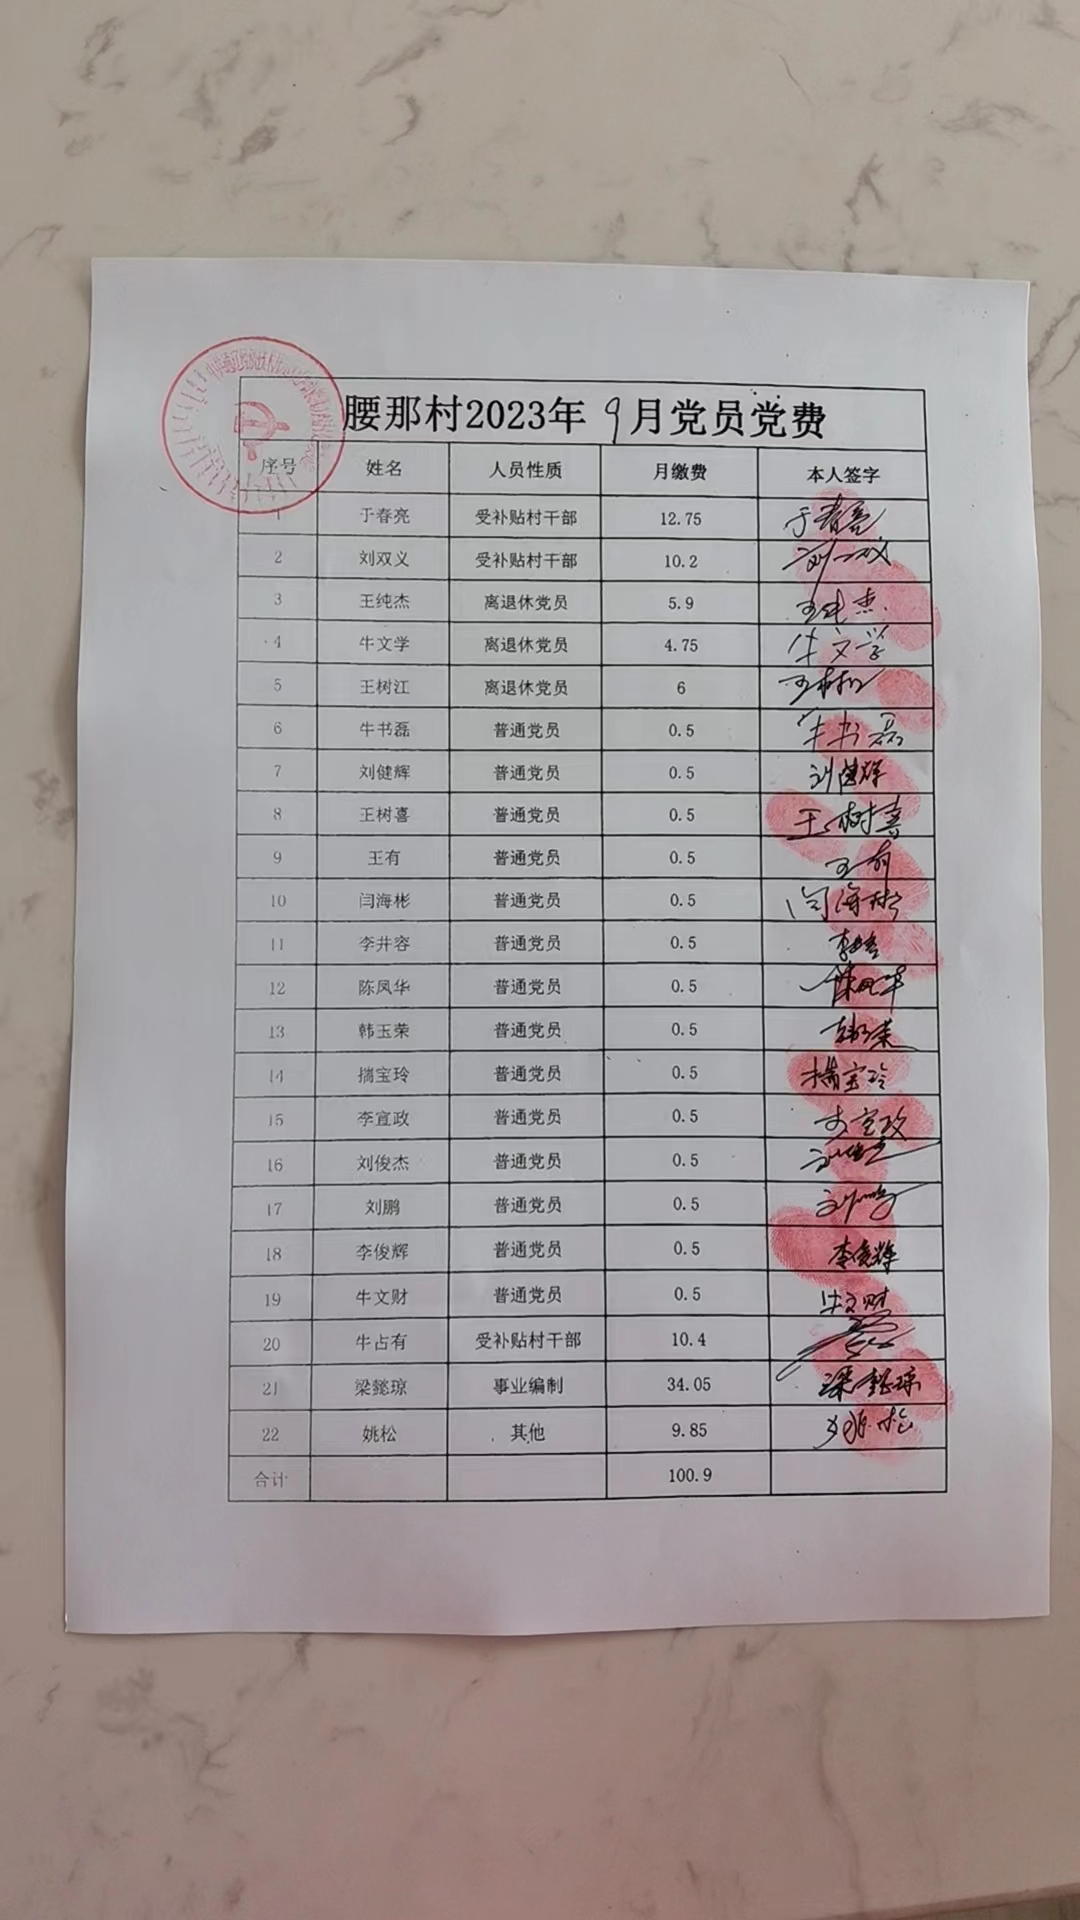 腰那村2023年 9月党员党费
序号 姓名 人员性质 月缴费 本人签字
1 于春亮 受补贴村干部 12.75 于春亮
2 刘双义 受补贴村干部 10.2
3 王纯杰 离退休党员 5.9 王纯杰
4 牛文学 离退休党员 4.75 牛文学
5 王树江 离退休党员 6 王树江
6 牛书磊 普通党员 0.5 牛书磊
7 刘健辉 普通党员 0.5 刘健辉
8 王树喜 普通党员 0.5 王树喜
9 王有 普通党员 0.5 王有
10 闫海彬 普通党员 0.5 闫海彬
11 李井容 普通党员 0.5
12 陈凤华 普通党员 0.5 陈凤华
13 韩玉荣 普通党员 0.5 韩玉荣
14 揣宝玲 普通党员 0.5 揣宝玲
15 李宣政 普通党员 0.5 李宣政
16 刘俊杰 普通党员 0.5 刘俊杰
17 刘鹏 普通党员 0.5 刘鹏
18 李俊辉 普通党员 0.5 李俊辉
19 牛文财 普通党员 0.5 牛文财
20 牛占有 受补贴村干部 10.4
21 梁懿琼 事业编制 34.05 梁懿琼
22 姚松 其他 9.85 姚松
合计 100.9